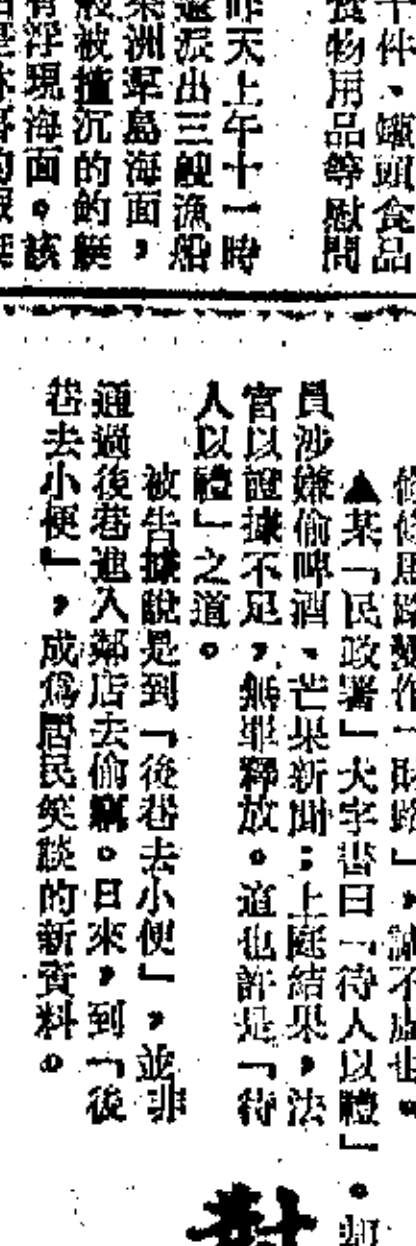 干件、罐頭食品
食物用品等慰問
昨天上午十一時
派出三艘漁船
洲羣島海面，
被撞沉的釣艇
浮現海面。該
馬路變作「財路」，誠不虛也。
▲某「民政署」大字書曰「待人以禮」。却
員涉嫌偷啤酒、芒果新聞；上庭結果，法
官以證據不足，無罪釋放。這也許是「待
人以禮」之道。
被告據說是到「後巷去小便」，並非
通過後巷進入鄰店去偷竊。日來，到「後
巷去小便」，成爲居民笑談的新資料。